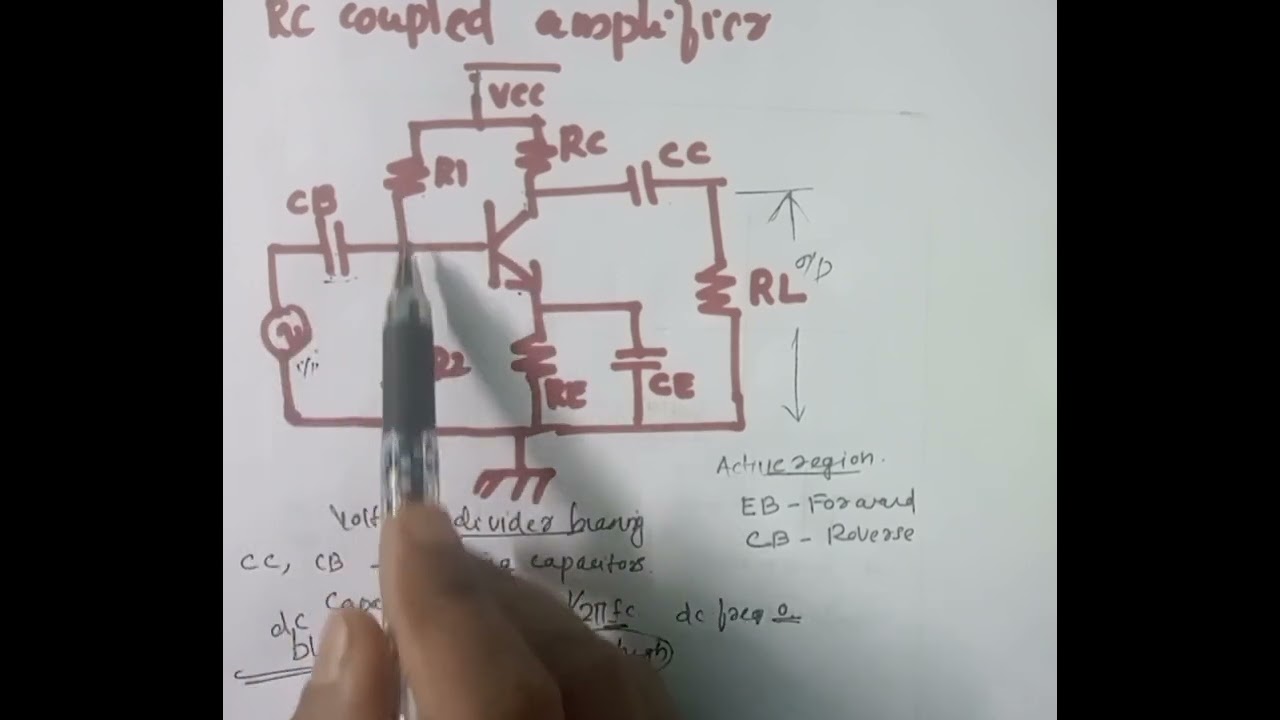 RC coupled amplifier
VCC
RC
CC
R1
CB
O/P
RL
RE
CE
Active region.
EB - Forward
CB - Reverse
divider biasing
CC, CB - capacitors.
1/2πfc dc freq 0.
dc
high